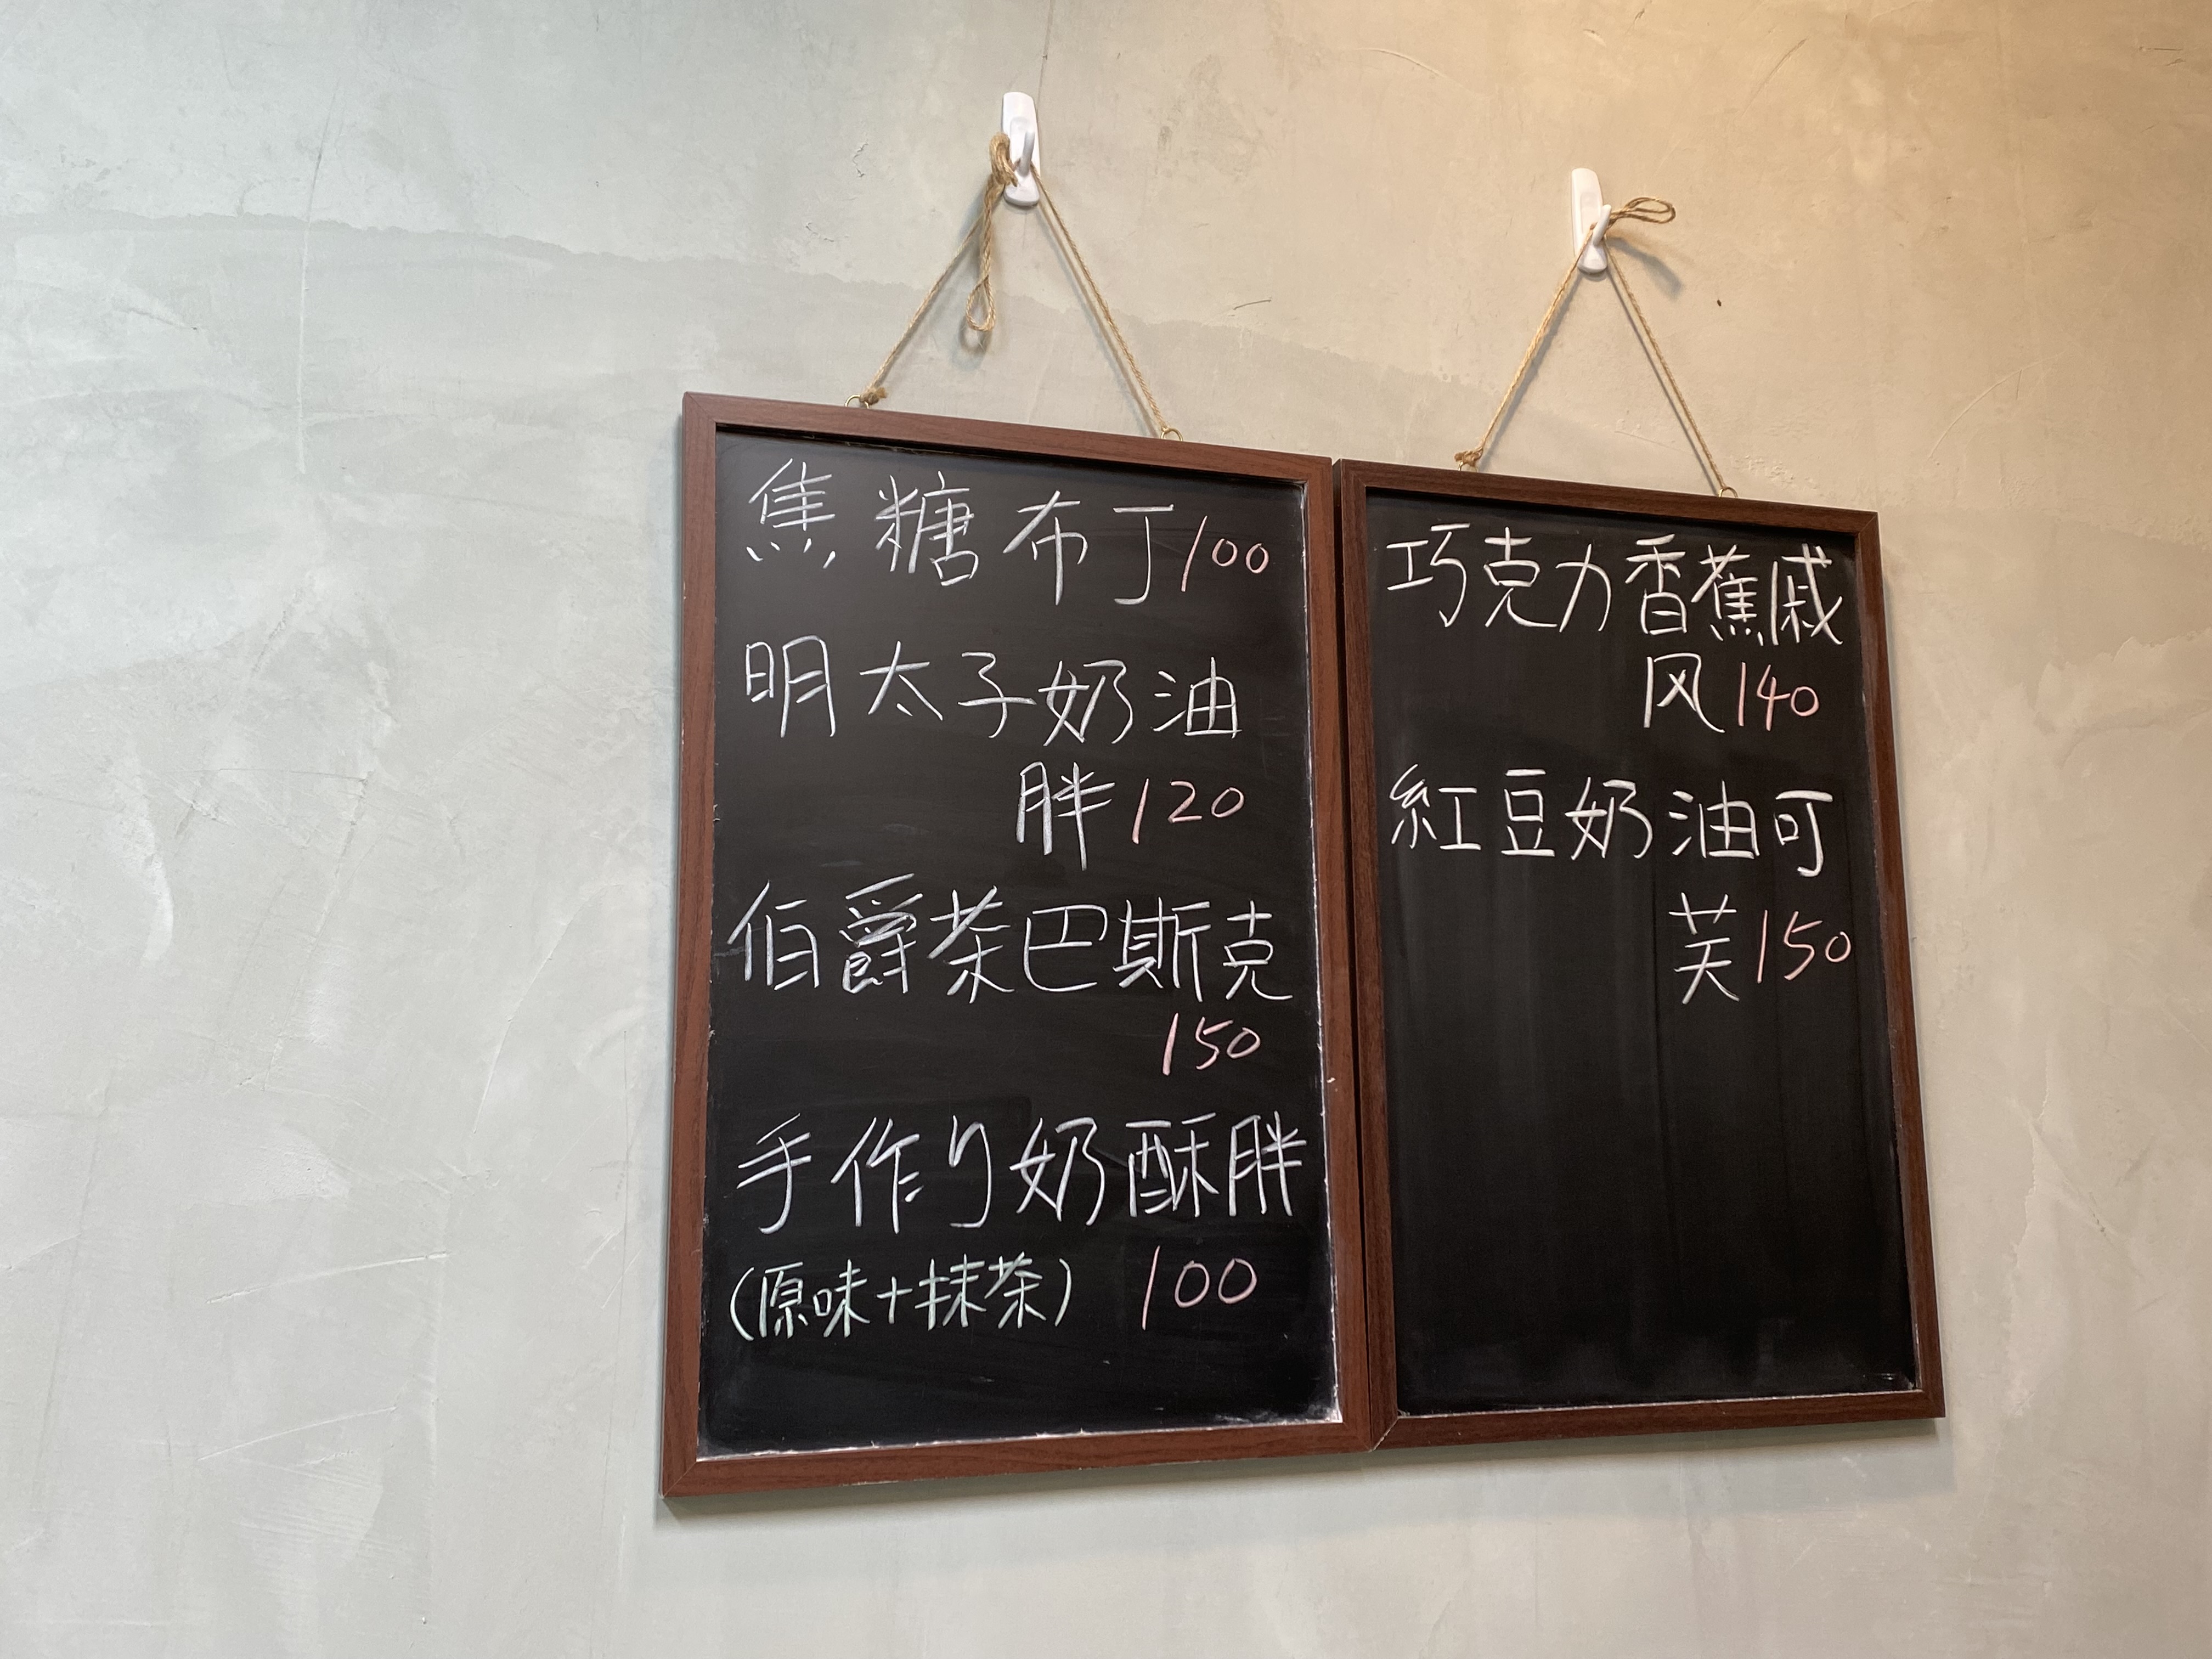 焦糖布丁100
明太子奶油
胖120
伯爵茶巴斯克
150
手作り奶酥胖
(原味+抹茶) 100
巧克力香蕉戚
风140
紅豆奶油可
芙150